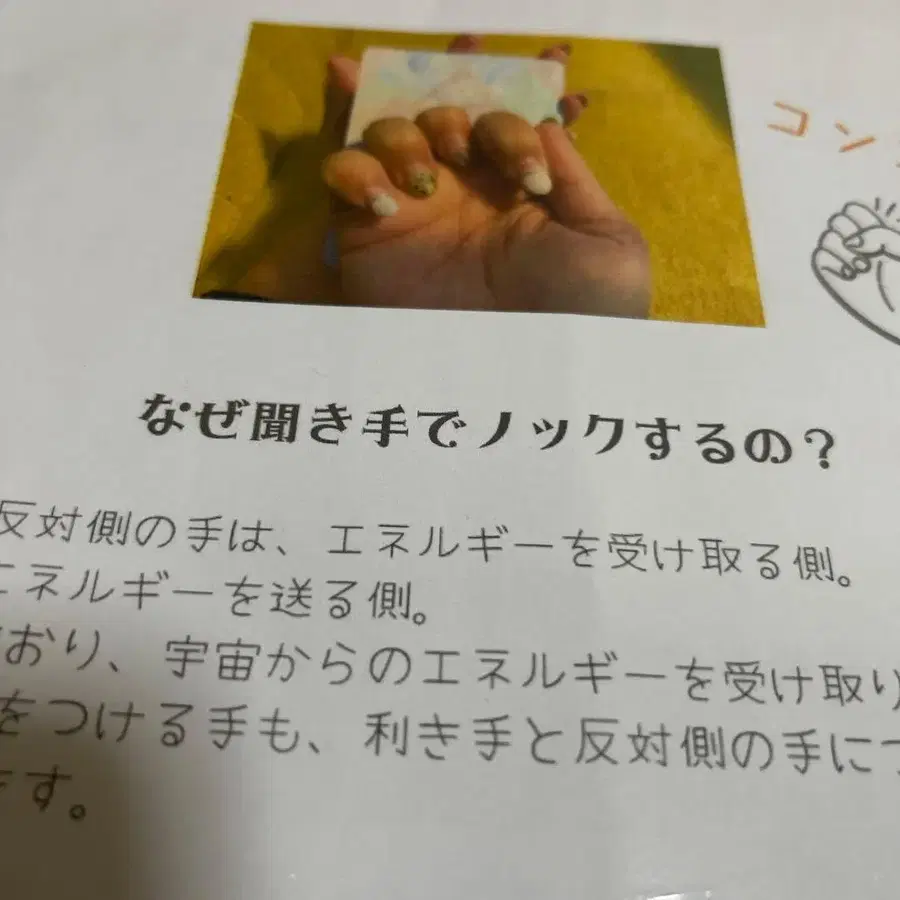 コン
なぜ聞き手でノックするの?
反対側の手は、エネルギーを受け取る側。
エネルギーを送る側。
おり、宇宙からのエネルギーを受け取り
をつける手も、利き手と反対側の手に
ます。